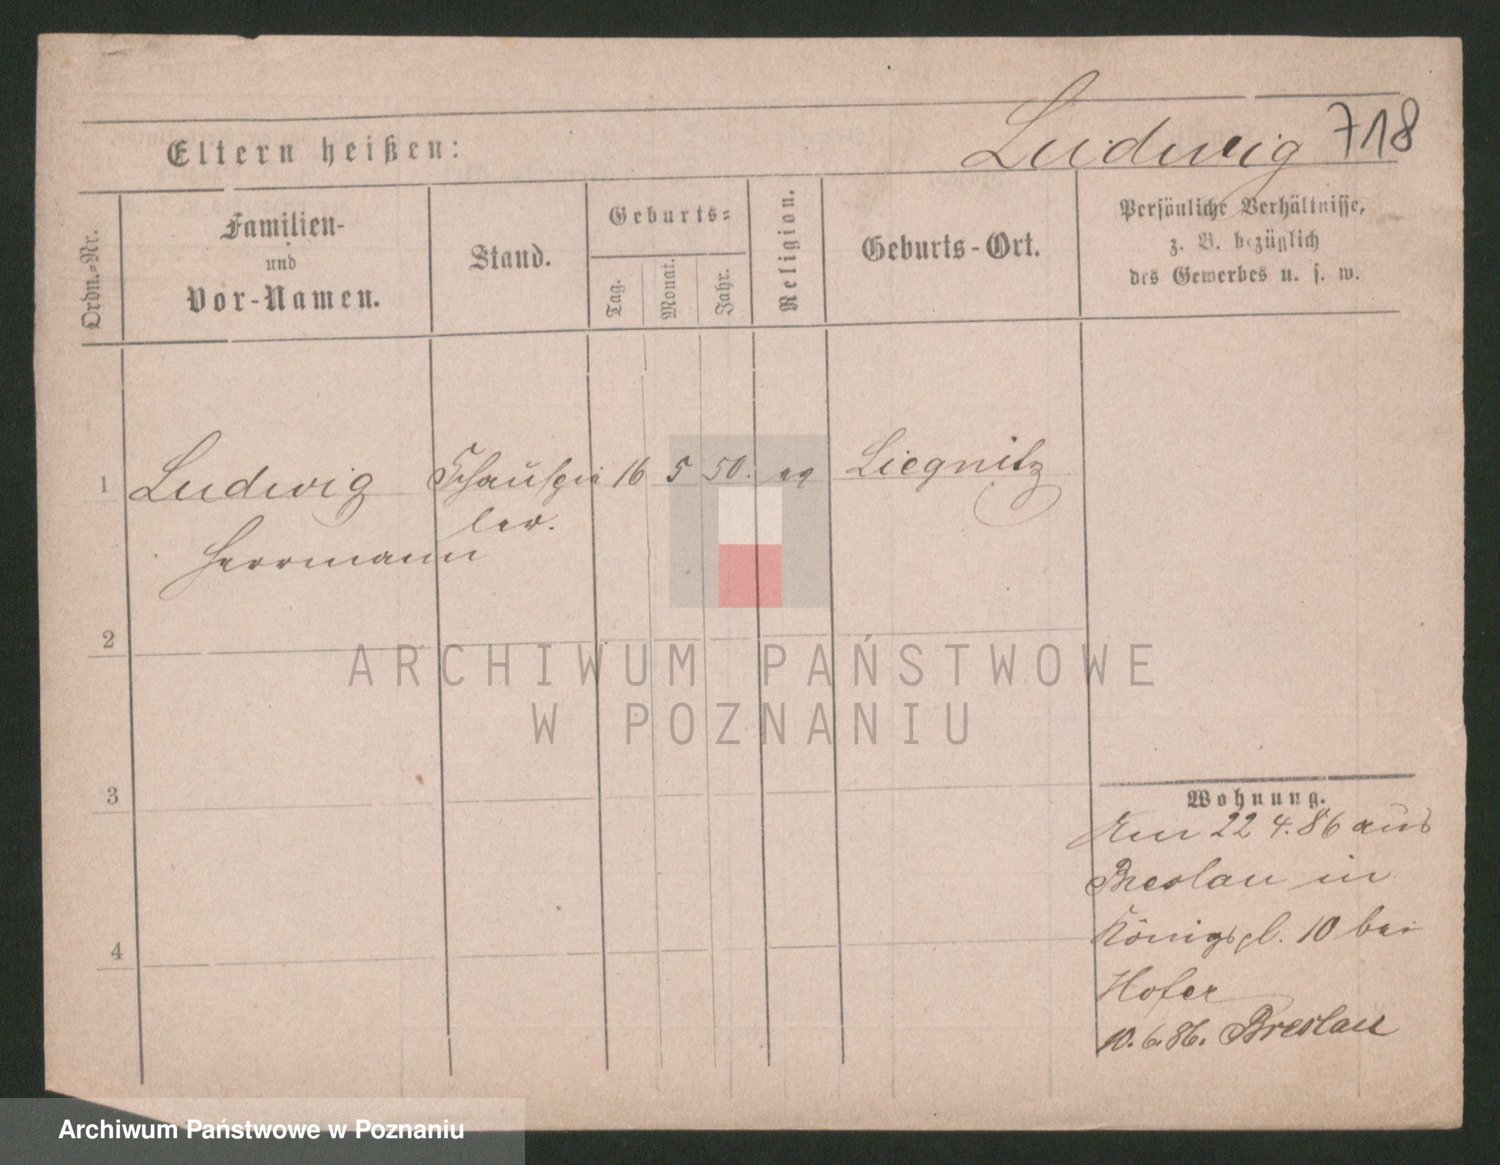 Ludwig 718
Eltern heißen:
Ordn.=Nr.
Familien-
und
Vor-Namen.
Stand.
Geburts=
Tag.
Monat.
Jahr.
Religion.
Geburts-Ort.
Persönliche Verhältnisse,
z. B. bezüglich
des Gewerbes u. s. w.
1 Ludwig Schauspie 16 5 50. Liegnitz
ler.
Herrmann
2
ARCHIWUM PAŃSTWOWE
W POZNANIU
3
Wohnung.
Am 22 4. 86 aus
Breslau in
Königspl. 10 bei
4
Hofer
10. 6. 86. Breslau
Archiwum Państwowe w Poznaniu